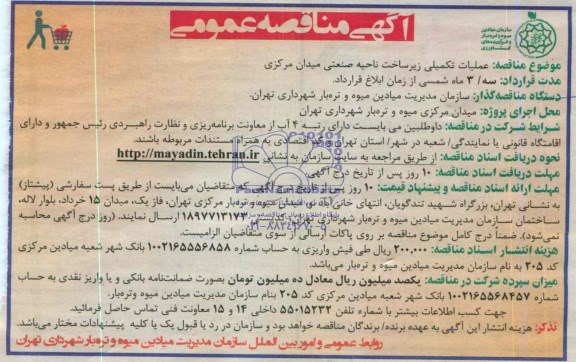 آگهی مناقصه عمومی
سازمان میادین
میوه و تره‌بار
و فرآورده‌های
کشاورزی
موضوع مناقصه: عملیات تکمیلی زیرساخت ناحیه صنعتی میدان مرکزی
مدت قرارداد: سه/ ۳ ماه شمسی از زمان ابلاغ قرارداد.
دستگاه مناقصه‌گذار: سازمان مدیریت میادین میوه و تره‌بار شهرداری تهران.
محل اجرای پروژه: میدان مرکزی میوه و تره‌بار شهرداری تهران
شرایط شرکت در مناقصه: داوطلبین می بایست دارای رتبه ۴ آب از معاونت برنامه‌ریزی و نظارت راهبردی رئیس جمهور و دارای
اقامتگاه قانونی یا نمایندگی/ شعبه در شهر/ استان تهران و کد اقتصادی به همراه مستندات مربوطه باشند.
نحوه دریافت اسناد مناقصه: از طریق مراجعه به سایت سازمان به نشانی http://mayadin.tehran.ir
مهلت دریافت اسناد مناقصه: ۱۰ روز پس از تاریخ درج آگهی.
مهلت ارائه اسناد مناقصه و پیشنهاد قیمت: ۱۰ روز پس از تاریخ درج آگهی. متقاضیان می‌بایست از طریق پست سفارشی (پیشتاز)
به نشانی تهران، بزرگراه شهید تندگویان، انتهای خانی‌آباد نو، میدان میوه و تره‌بار مرکزی تهران، فاز یک، میدان ۱۵ خرداد، بلوار لاله،
ساختمان سازمان مدیریت میادین میوه و تره‌بار شهرداری تهران، کدپستی ۱۸۹۷۷۱۳۱۷۳ ارسال نمایند. (روز درج آگهی محاسبه
نمی‌شود). ضمناً درج کامل موضوع مناقصه بر روی پاکات ارسالی از سوی متقاضیان الزامیست.
هزینه انتشار اسناد مناقصه: ۲۰۰,۰۰۰ ریال طی فیش واریزی به حساب شماره ۱۰۰۲۱۶۵۵۵۶۸۵۸ بانک شهر شعبه میادین مرکزی
کد ۲۰۵ به نام سازمان مدیریت میادین میوه و تره‌بار می‌باشد.
میزان سپرده شرکت در مناقصه: یکصد میلیون ریال معادل ده میلیون تومان بصورت ضمانت‌نامه بانکی و یا واریز نقدی به حساب
شماره ۱۰۰۲۱۶۵۵۶۸۴۵۷ بانک شهر شعبه میادین مرکزی کد ۲۰۵ بنام سازمان مدیریت میادین میوه وتره‌بار.
جهت کسب اطلاعات بیشتر با شماره تلفن ۵۵۰۱۵۲۳۲ داخلی ۱۴ و ۱۵ معاونت فنی تماس حاصل فرمائید.
تذکر: هزینه انتشار این آگهی به عهده برنده/ برندگان مناقصه خواهد بود و سازمان در رد یا قبول یک یا کلیه پیشنهادات مختار می‌باشد.
روابط عمومی و امور بین الملل سازمان مدیریت میادین میوه و تره بار شهرداری تهران